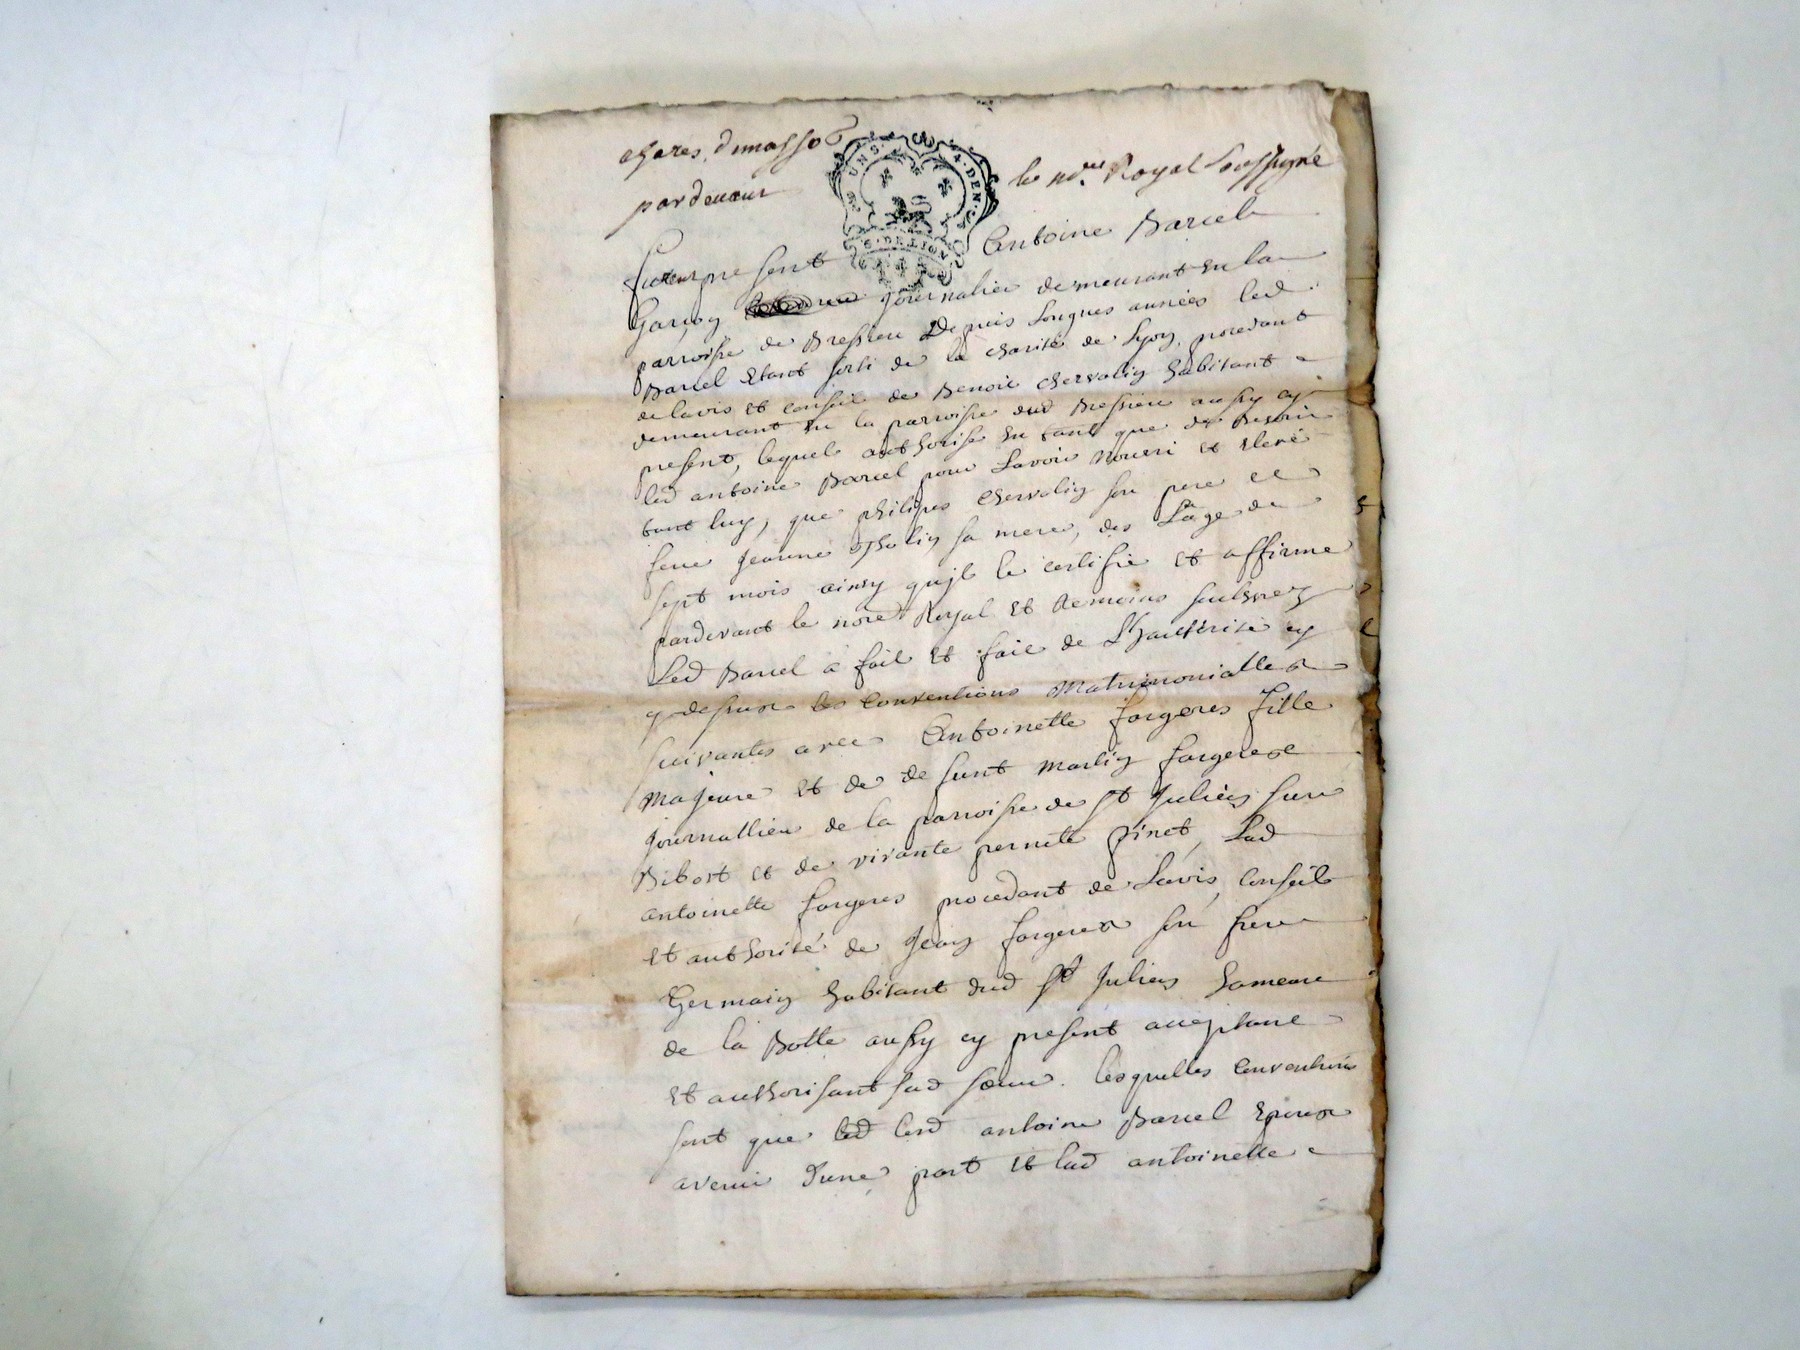 pardevant
le no.re Royal Soussigné
UNS · 4 · DEN · G · DE LION
present Antoine Barcel
Garçon journalier demeurant en la
parroisse de Bressieu Depuis longues années led
Barcel Etant sorti de la charité de Lyon, procedant
de lavis et conseil de Benoit chervolin habitant
demeurant en la parroisse dud Bressieu aussy cy
present, lequel authorise en tant que de besoin
led antoine Barcel pour Lavoir nourri et Elevé
tant luy, que philipes chervolin son pere et
feue jeanne sa mere, des Lage de
sept mois ainsy quil le certifie et affirme
pardevant le nore Royal et temoins
Led Barcel a fait et fait de Lhauthorité cy
dessus les Conventions Matrimonialles
suivantes avec Antoinette forgeres fille
majeure et de defunt martin forgeres
journallier de la parroisse de St Julien sur
Bibost et de vivante pernete pinet, Lad
antoinette forgeres procedant de Lavis, conseil
et authorité de jean forgeres son frere
Germain habitant dud St Julien hameau
de la Botte aussy cy present acceptant
et authorisant sad sœur. lesquelles conventions
sont que led antoine Barcel Epoux
avenir Dune part et lad antoinette